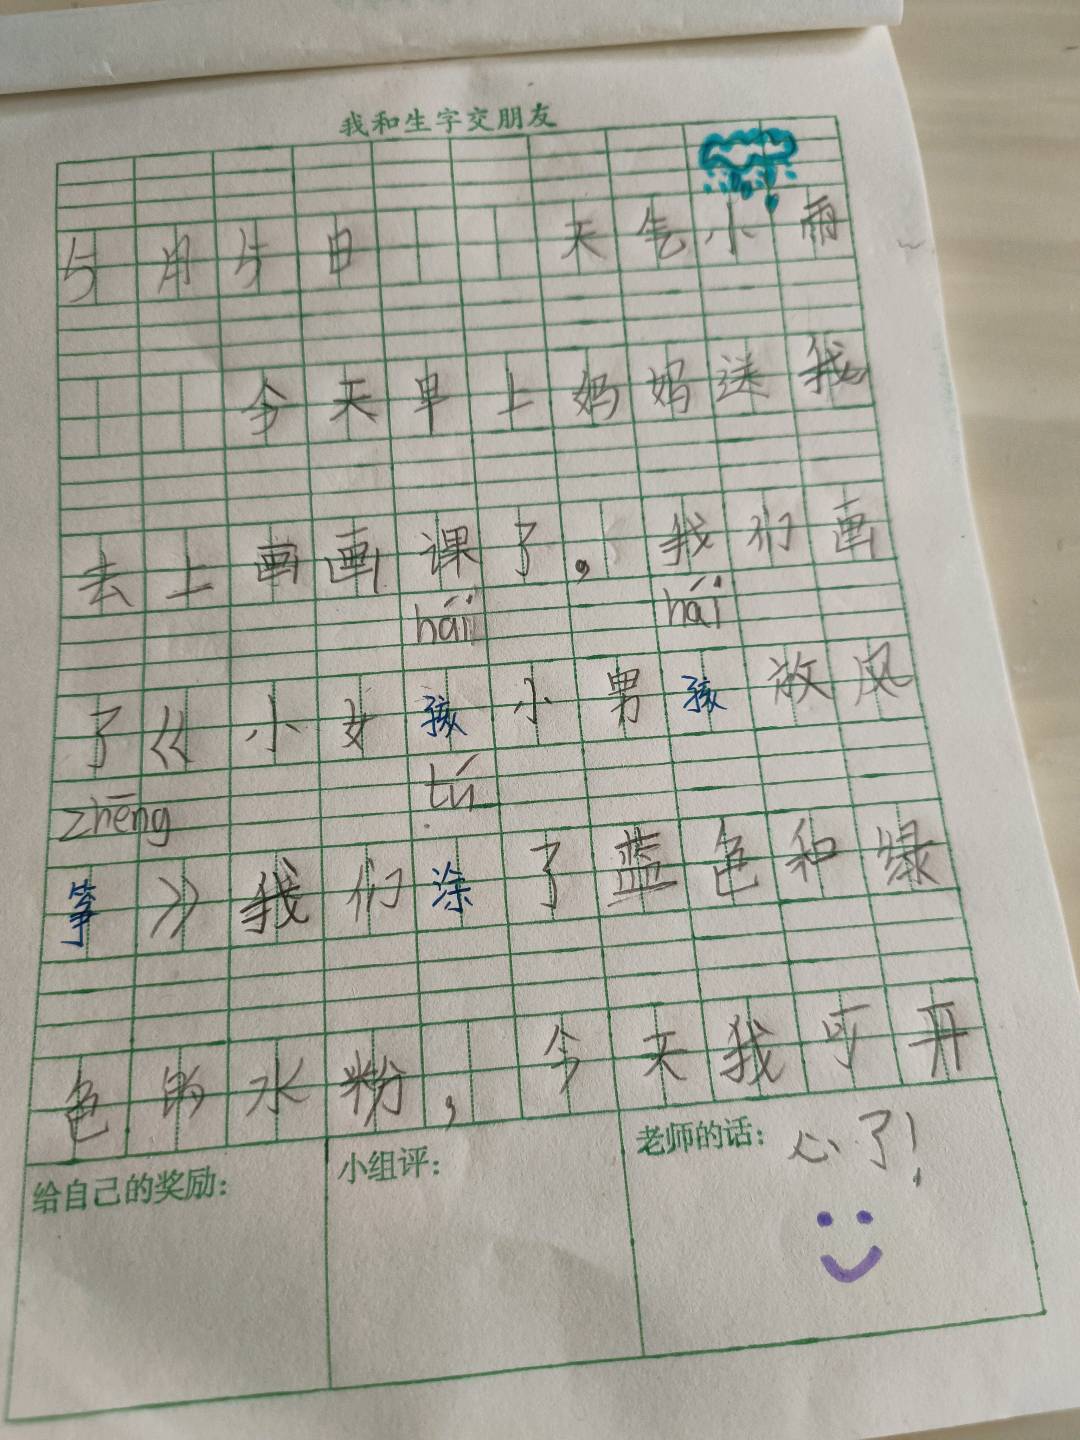 我和生字交朋友
5月5日 天气小雨
今天早上妈妈送我
去上画画课了，我们画
hái hái
了《小女孩小男孩放风
zhēng tú
筝》我们涂了蓝色和绿
色的水粉，今天我可开
给自己的奖励：
小组评：
老师的话：
心了！